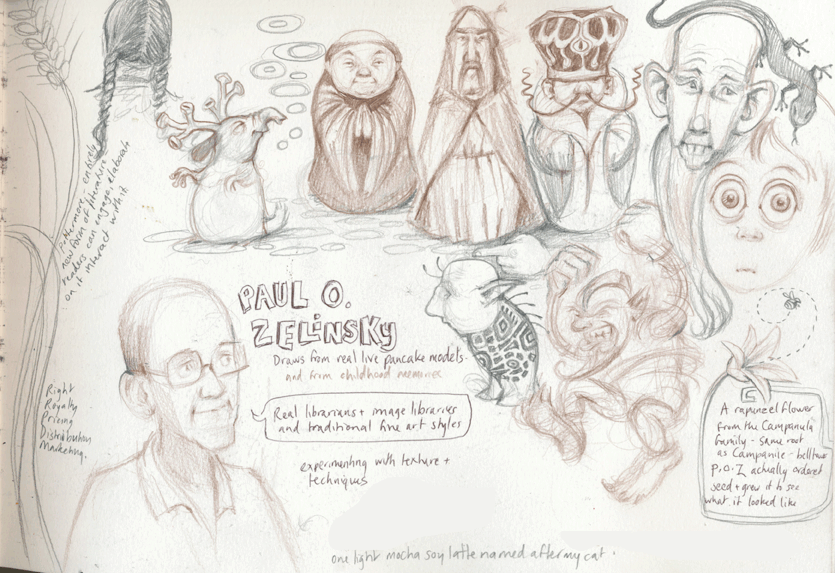 Furthermore, entirely
new form of literature
readers can engage, elaborate
on it interact with it.
PAUL O.
ZELINSKY
Draws from real live pancake models
and from childhood memories
Real librarians + image libraries
and traditional fine art styles
experimenting with texture +
techniques
Right
Royalty
Pricing
Distribution
Marketing.
A rapunzel flower
from the Campanula
family - same root
as Campanile - belltower
P.O.Z actually ordered
seed + grew it to see
what it looked like
one light mocha soy latte named after my cat.